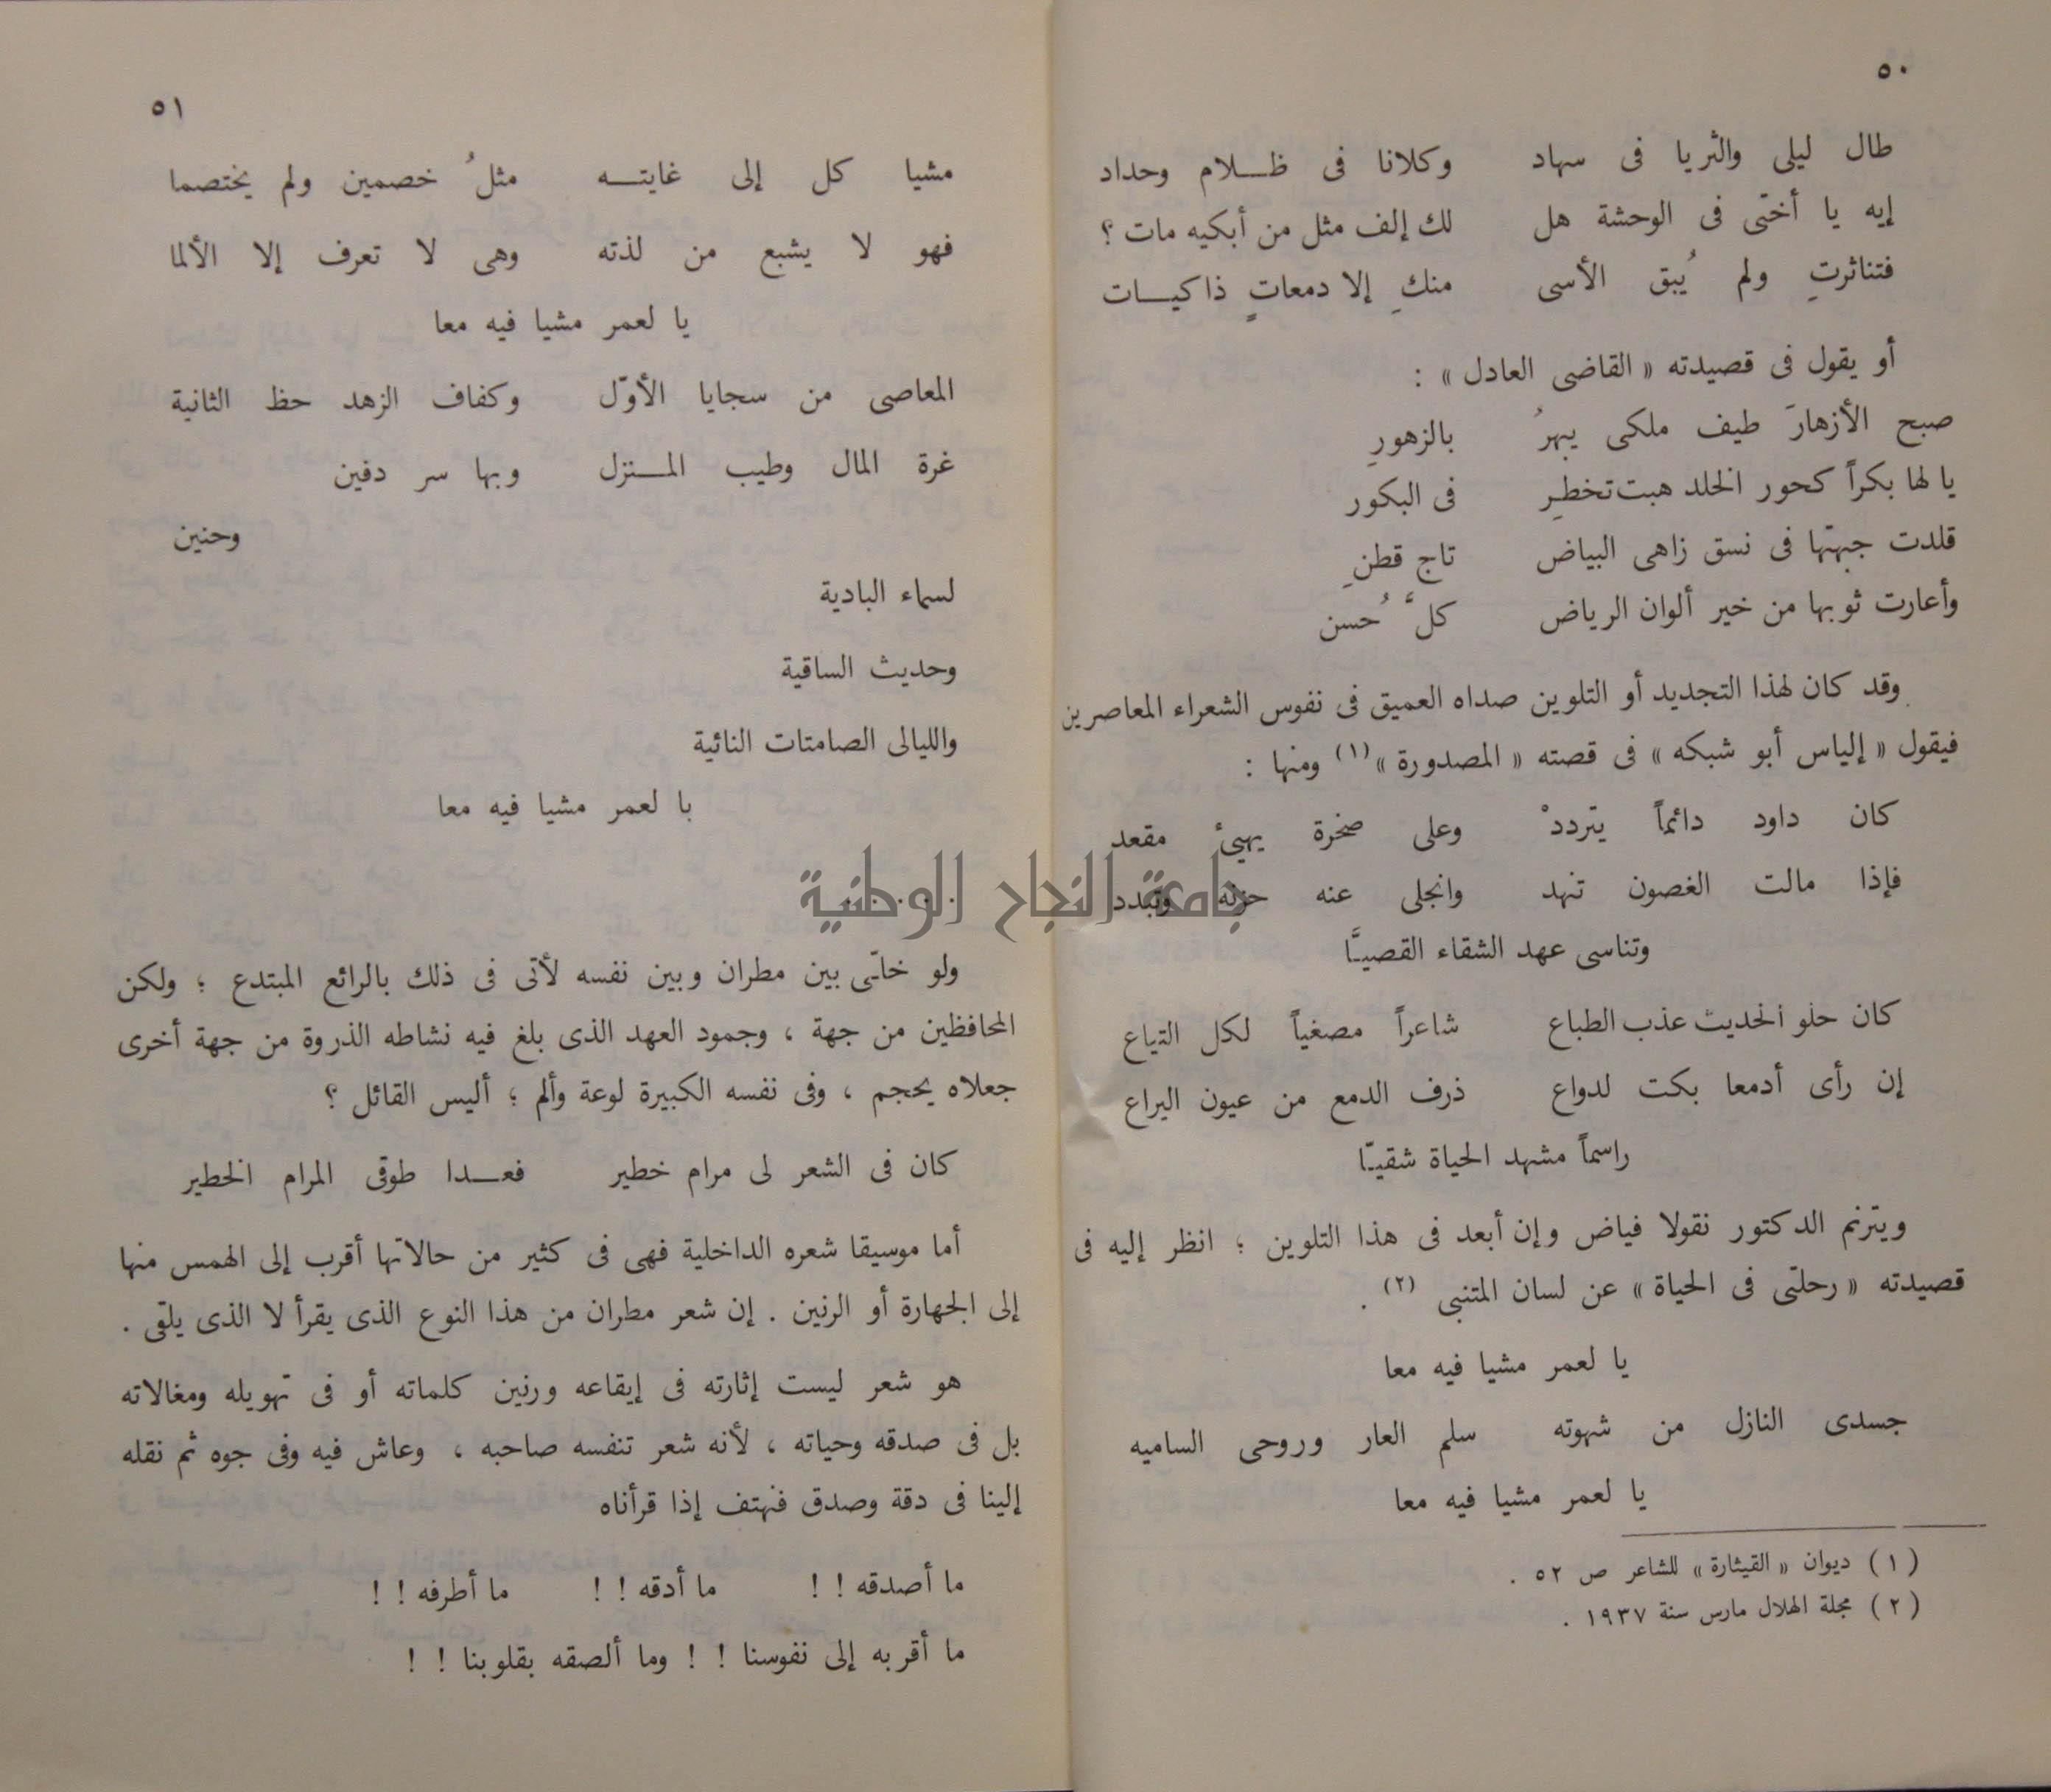 ٥٠
طال ليلى والثريا فى سهاد وكلانا فى ظلام وحداد
إيه يا أختى فى الوحشة هل لك إلف مثل من أبكيه مات ؟
فتناثرتِ ولم يُبق الأسى منكِ إلا دمعاتٍ ذاكيات
أو يقول فى قصيدته « القاضى العادل » :
صبح الأزهارَ طيف ملكى يبهرُ بالزهورِ
يا لها بكراً كحور الخلد هبت تخطرِ فى البكور
قلدت جبهتها فى نسق زاهى البياض تاج قطنِ
وأعارت ثوبها من خير ألوان الرياض كلَّ حُسن
وقد كان لهذا التجديد أو التلوين صداه العميق فى نفوس الشعراء المعاصرين
فيقول « إلياس أبو شبكه » فى قصته « المصدورة »(١) ومنها :
كان داود دائماً يترددْ وعلى صخرة يهيئ مقعد
فإذا مالت الغصون تنهد وانجلى عنه حزنه وتبدد
وتناسى عهد الشقاء القصيـَّا
كان حلو الحديث عذب الطباع شاعراً مصغياً لكل التياع
إن رأى أدمعا بكت لدواع ذرف الدمع من عيون اليراع
راسماً مشهد الحياة شقيـّا
ويترنم الدكتور نقولا فياض وإن أبعد فى هذا التلوين ؛ انظر إليه فى
قصيدته « رحلتى فى الحياة » عن لسان المتنبى (٢) .
يا لعمر مشيا فيه معا
جسدى النازل من شهوته سلم العار وروحى الساميه
يا لعمر مشيا فيه معا
( ١ ) ديوان « القيثارة » للشاعر ص ٥٢ .
( ٢ ) مجلة الهلال مارس سنة ١٩٣٧ .
٥١
مشيا كل إلى غايته مثلُ خصمين ولم يختصما
فهو لا يشبع من لذته وهى لا تعرف إلا الألما
يا لعمر مشيا فيه معا
المعاصى من سجايا الأوّل وكفاف الزهد حظ الثانية
غرة المال وطيب المنزل وبها سر دفين
وحنين
لسماء البادية
وحديث الساقية
والليالى الصامتات النائية
با لعمر مشيا فيه معا
جامعة النجاح الوطنية
ولو خلّى بين مطران وبين نفسه لأتى فى ذلك بالرائع المبتدع ؛ ولكن
المحافظين من جهة ، وجمود العهد الذى بلغ فيه نشاطه الذروة من جهة أخرى
جعلاه يحجم ، وفى نفسه الكبيرة لوعة وألم ؛ أليس القائل ؟
كان فى الشعر لى مرام خطير فعدا طوقى المرام الخطير
أما موسيقا شعره الداخلية فهى فى كثير من حالاتها أقرب إلى الهمس منها
إلى الجهارة أو الرنين . إن شعر مطران من هذا النوع الذى يقرأ لا الذى يلقى .
هو شعر ليست إثارته فى إيقاعه ورنين كلماته أو فى تهويله ومغالاته
بل فى صدقه وحياته ، لأنه شعر تنفسه صاحبه ، وعاش فيه وفى جوه ثم نقله
إلينا فى دقة وصدق فنهتف إذا قرأناه
ما أصدقه ! ! ما أدقه ! ! ما أطرفه ! !
ما أقربه إلى نفوسنا ! ! وما ألصقه بقلوبنا ! !